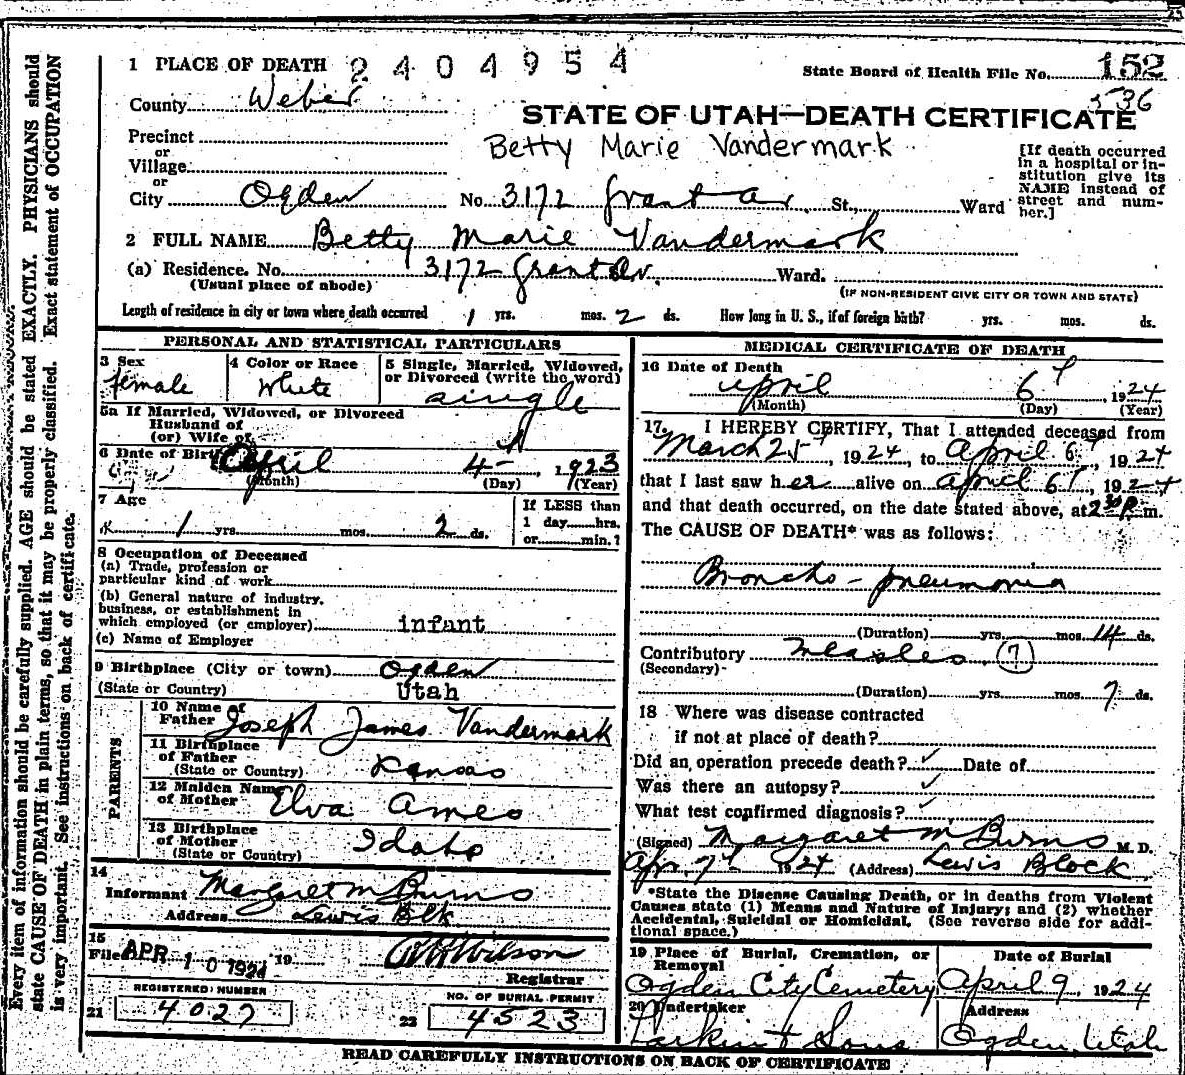 25
1 PLACE OF DEATH 2404954
State Board of Health File No. 152
536
County Weber
STATE OF UTAH—DEATH CERTIFICATE
Precinct
Betty Marie Vandermark
or
Village
or
City Ogden No. 3172 Grant Av. St., Ward
[If death occurred
in a hospital or in-
stitution give its
NAME instead of
street and num-
ber.]
2 FULL NAME Betty Marie Vandermark
(a) Residence. No. 3172 Grant Av. Ward.
(Usual place of abode)
(IF NON-RESIDENT GIVE CITY OR TOWN AND STATE)
Length of residence in city or town where death occurred 1 yrs. mos. 2 ds. How long in U. S., if of foreign birth? yrs. mos. ds.
PERSONAL AND STATISTICAL PARTICULARS
3 Sex
female
4 Color or Race
White
5 Single, Married, Widowed,
or Divorced (write the word)
single
5a If Married, Widowed, or Divorced
Husband of
(or) Wife of
6 Date of Birth April 4- 1923
(Month) (Day) (Year)
7 Age
1 yrs. mos. 2 ds.
If LESS than
1 day hrs.
or min.?
8 Occupation of Deceased
(a) Trade, profession or
particular kind of work
(b) General nature of industry,
business, or establishment in
which employed (or employer) infant
(c) Name of Employer
9 Birthplace (City or town) Ogden
(State or Country) Utah
PARENTS
10 Name of
Father Joseph James Vandermark
11 Birthplace
of Father
(State or Country) Kansas
12 Maiden Name
of Mother Elva Ames
13 Birthplace
of Mother
(State or Country) Idaho
14
Informant Margaret M Burns
Address Lewis Blk
15
Filed APR 10 1924 19
Registrar
REGISTERED NUMBER
21 4027
NO. OF BURIAL PERMIT
22 4523
MEDICAL CERTIFICATE OF DEATH
16 Date of Death
April 6 1924
(Month) (Day) (Year)
17. I HEREBY CERTIFY, That I attended deceased from
March 25, 1924, to April 6, 1924
that I last saw her alive on April 6, 1924
and that death occurred, on the date stated above, at 2 30 P. m.
The CAUSE OF DEATH* was as follows:
Broncho-pneumonia
(Duration) yrs. mos. 14 ds.
Contributory Measles (7)
(Secondary)
(Duration) yrs. mos. 7 ds.
18 Where was disease contracted
if not at place of death?
Did an operation precede death? ✓ Date of
Was there an autopsy? ✓
What test confirmed diagnosis? ✓
(Signed) Margaret M Burns M. D.
Apr. 7 1924 (Address) Lewis Block
*State the Disease Causing Death, or in deaths from Violent
Causes state (1) Means and Nature of Injury; and (2) whether
Accidental, Suicidal or Homicidal. (See reverse side for addi-
tional space.)
19 Place of Burial, Cremation, or
Removal
Ogden City Cemetery
Date of Burial
April 9, 1924
20 Undertaker
Larkin & Sons
Address
Ogden, Utah
READ CAREFULLY INSTRUCTIONS ON BACK OF CERTIFICATE
Every item of information should be carefully supplied. AGE should be stated EXACTLY. PHYSICIANS should
state CAUSE OF DEATH in plain terms, so that it may be properly classified. Exact statement of OCCUPATION
is very important. See instructions on back of certificate.